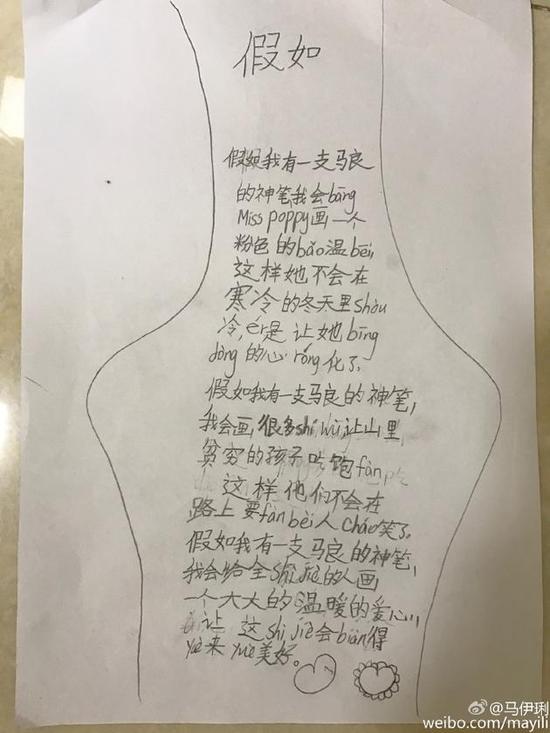 假如
假如我有一支马良
的神笔,我会bāng
Miss poppy画一个
粉色的bǎo温bēi,
这样她不会在
寒冷的冬天里shòu
冷,ér是让她bīng
dòng的心róng化了。
假如我有一支马良的神笔,
我会画很多shí wù让山里
贫穷的孩子吃饱fàn,
这样他们不会在
路上要fàn bèi人cháo笑了。
假如我有一支马良的神笔,
我会给全shì jiè的人画
一个大大的温暖的爱心,
让这shì jiè会biàn得
yuè来yuè美好。
@马伊琍
weibo.com/mayili